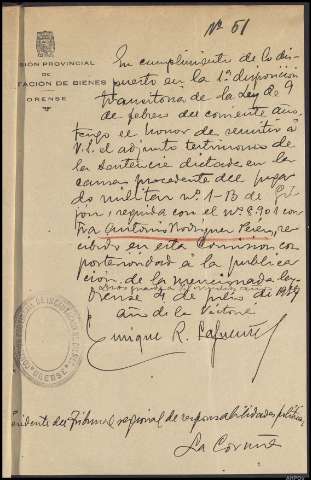 Nº 51
SIÓN PROVINCIAL
DE
TACIÓN DE BIENES
ORENSE
En cumplimiento de lo dis-
puesto en la 1ª disposición
transitoria de la Ley de 9
de febrero del corriente año,
tengo el honor de remitir á
V.I. el adjunto testimonio de
la sentencia dictada en la
causa procedente del juzga-
do militar nº 1-B de Gi-
jón, seguida con el nº 8.901 con-
tra Antonio Rodríguez Pérez, re-
cibido en esta Comisión con
posterioridad á la publica-
ción de la mencionada Ley
Dios guarde á V.I. muchos años
Orense 4 de julio de 1939
año de la Victoria
Enrique R. Lafuente
PROVINCIAL DE INCAUTACIÓN DE BIENES
ORENSE
sidente del Tribunal regional de responsabilidades políticas,
La Coruña